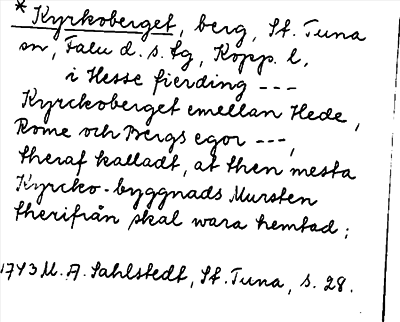 * Kyrkoberget, berg, St. Tuna
sn, Falu d. s. tg, Kopp. l.
i Hesse fierding ---
Kyrckoberget emellan Hede,
Rome och Bergs egor ---,
theraf kalladt, at then mesta
Kyrcko-byggnads Mursten
therifrån skal wara hemtad;
1743 M. A. Sahlstedt, St. Tuna, s. 28.